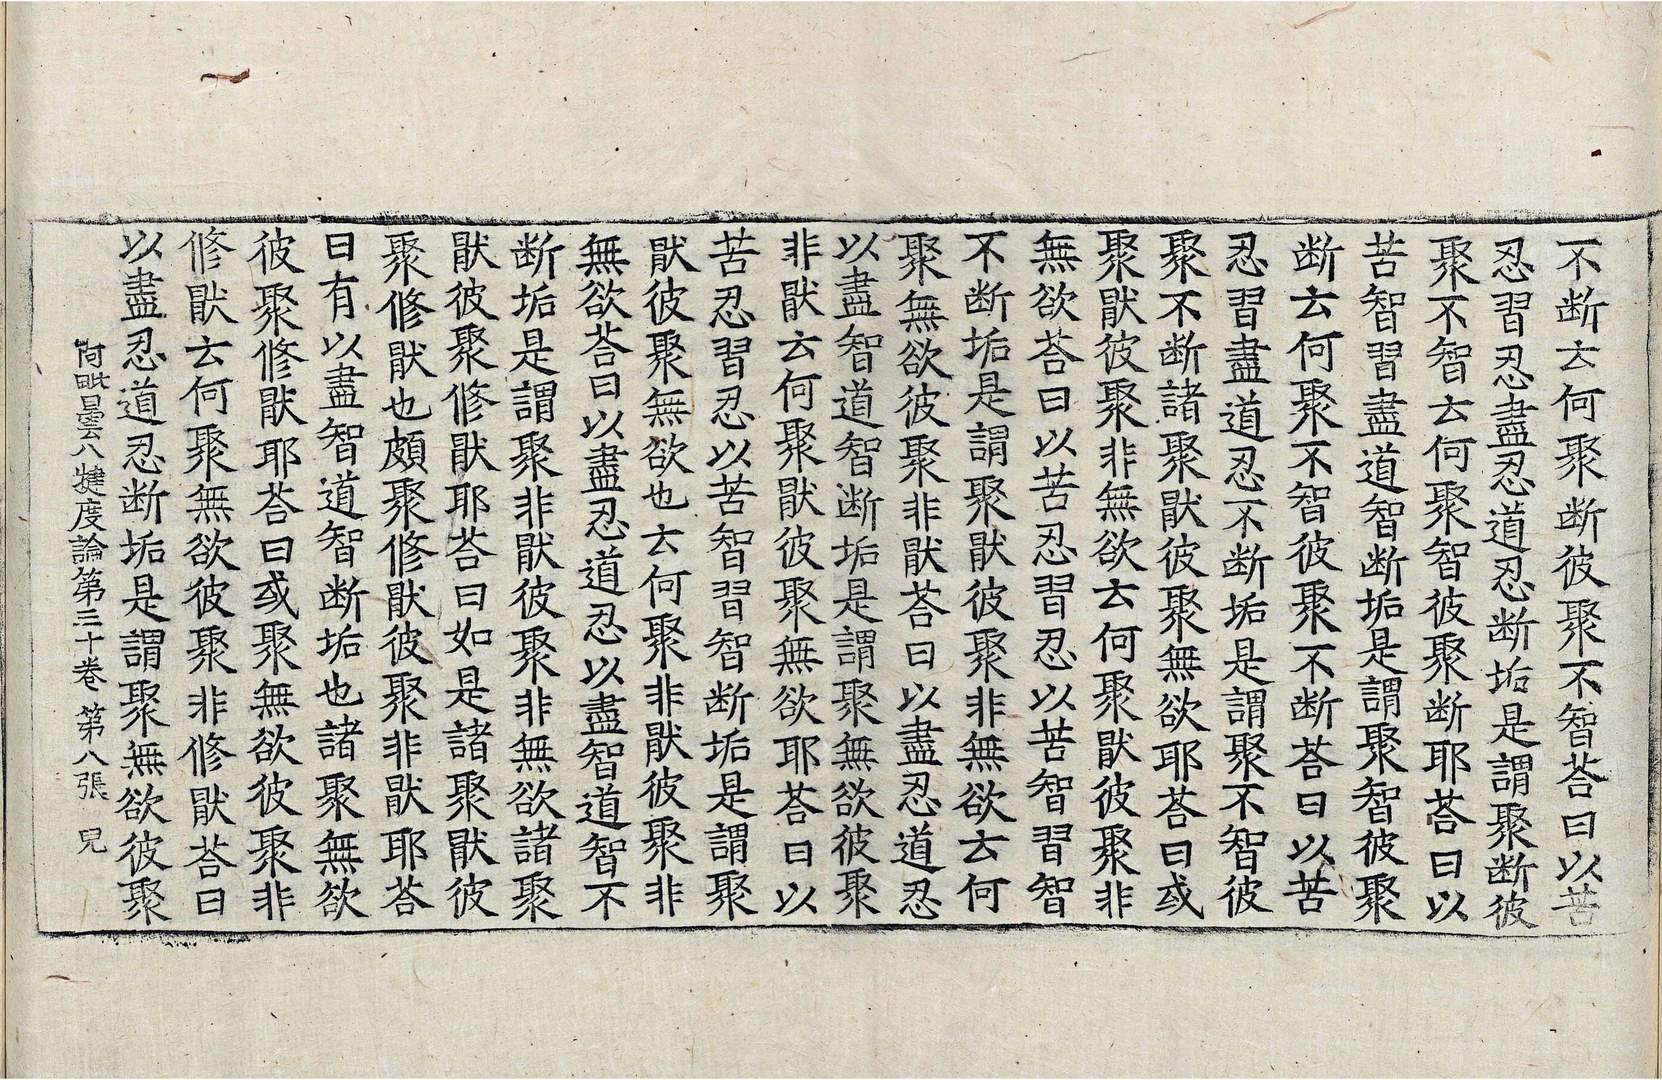 不断云何聚断彼聚不智荅曰以苦
忍習忍盡忍道忍断垢是謂聚断彼
聚不智云何聚智彼聚断耶荅曰以
苦智習盡道智断垢是謂聚智彼聚
断云何聚不智彼聚不断荅曰以苦
忍習盡道忍不断垢是謂聚不智彼
聚不断諸聚猒彼聚無欲耶荅曰或
聚猒彼聚非無欲云何聚猒彼聚非
無欲荅曰以苦忍習忍以苦智習智
不断垢是謂聚猒彼聚非無欲云何
聚無欲彼聚非猒荅曰以盡忍道忍
以盡智道智断垢是謂聚無欲彼聚
非猒云何聚猒彼聚無欲耶荅曰以
苦忍習忍以苦智習智断垢是謂聚
猒彼聚無欲也云何聚非猒彼聚非
無欲荅曰以盡忍道忍以盡智道智不
断垢是謂聚非猒彼聚非無欲諸聚
猒彼聚修猒耶荅曰如是諸聚猒彼
聚修猒也頗聚修猒彼聚非猒耶荅
曰有以盡智道智断垢也諸聚無欲
彼聚修猒耶荅曰或聚無欲彼聚非
修猒云何聚無欲彼聚非修猒荅曰
以盡忍道忍断垢是謂聚無欲彼聚
阿毗曇八犍度論第三十卷 第八張 兒